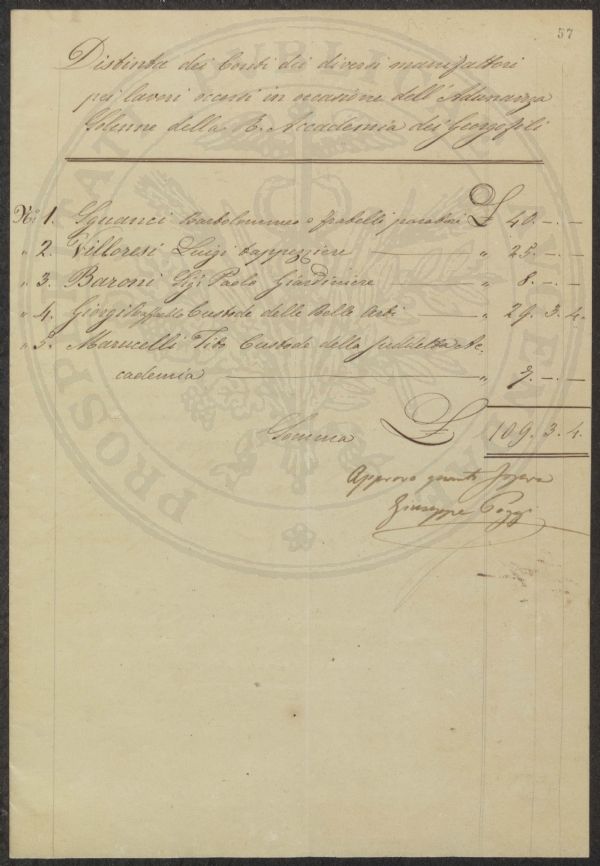 57
Distinta dei Conti dei diversi manifattori
pei lavori occorsi in occasione dell'Adunanza
Solenne della R. Accademia dei Georgofili
N.° 1. Sguanci Bartolommeo e fratelli paratori £ 40. -. -
" 2. Villoresi Luigi tappezziere " 25. -. -
" 3. Baroni Sig. Paolo Giardiniere " 8. -. -
" 4. Giorgi Raffaello Custode delle Belle Arti " 29. 3. 4.
" 5. Marucelli Tito Custode della suddetta Ac-
cademia " 7. -. -
Somma £ 109. 3. 4.
Approvo quanto sopra
Giuseppe Poggi
PROSPERITATI PUBLICAE AUGENDAE